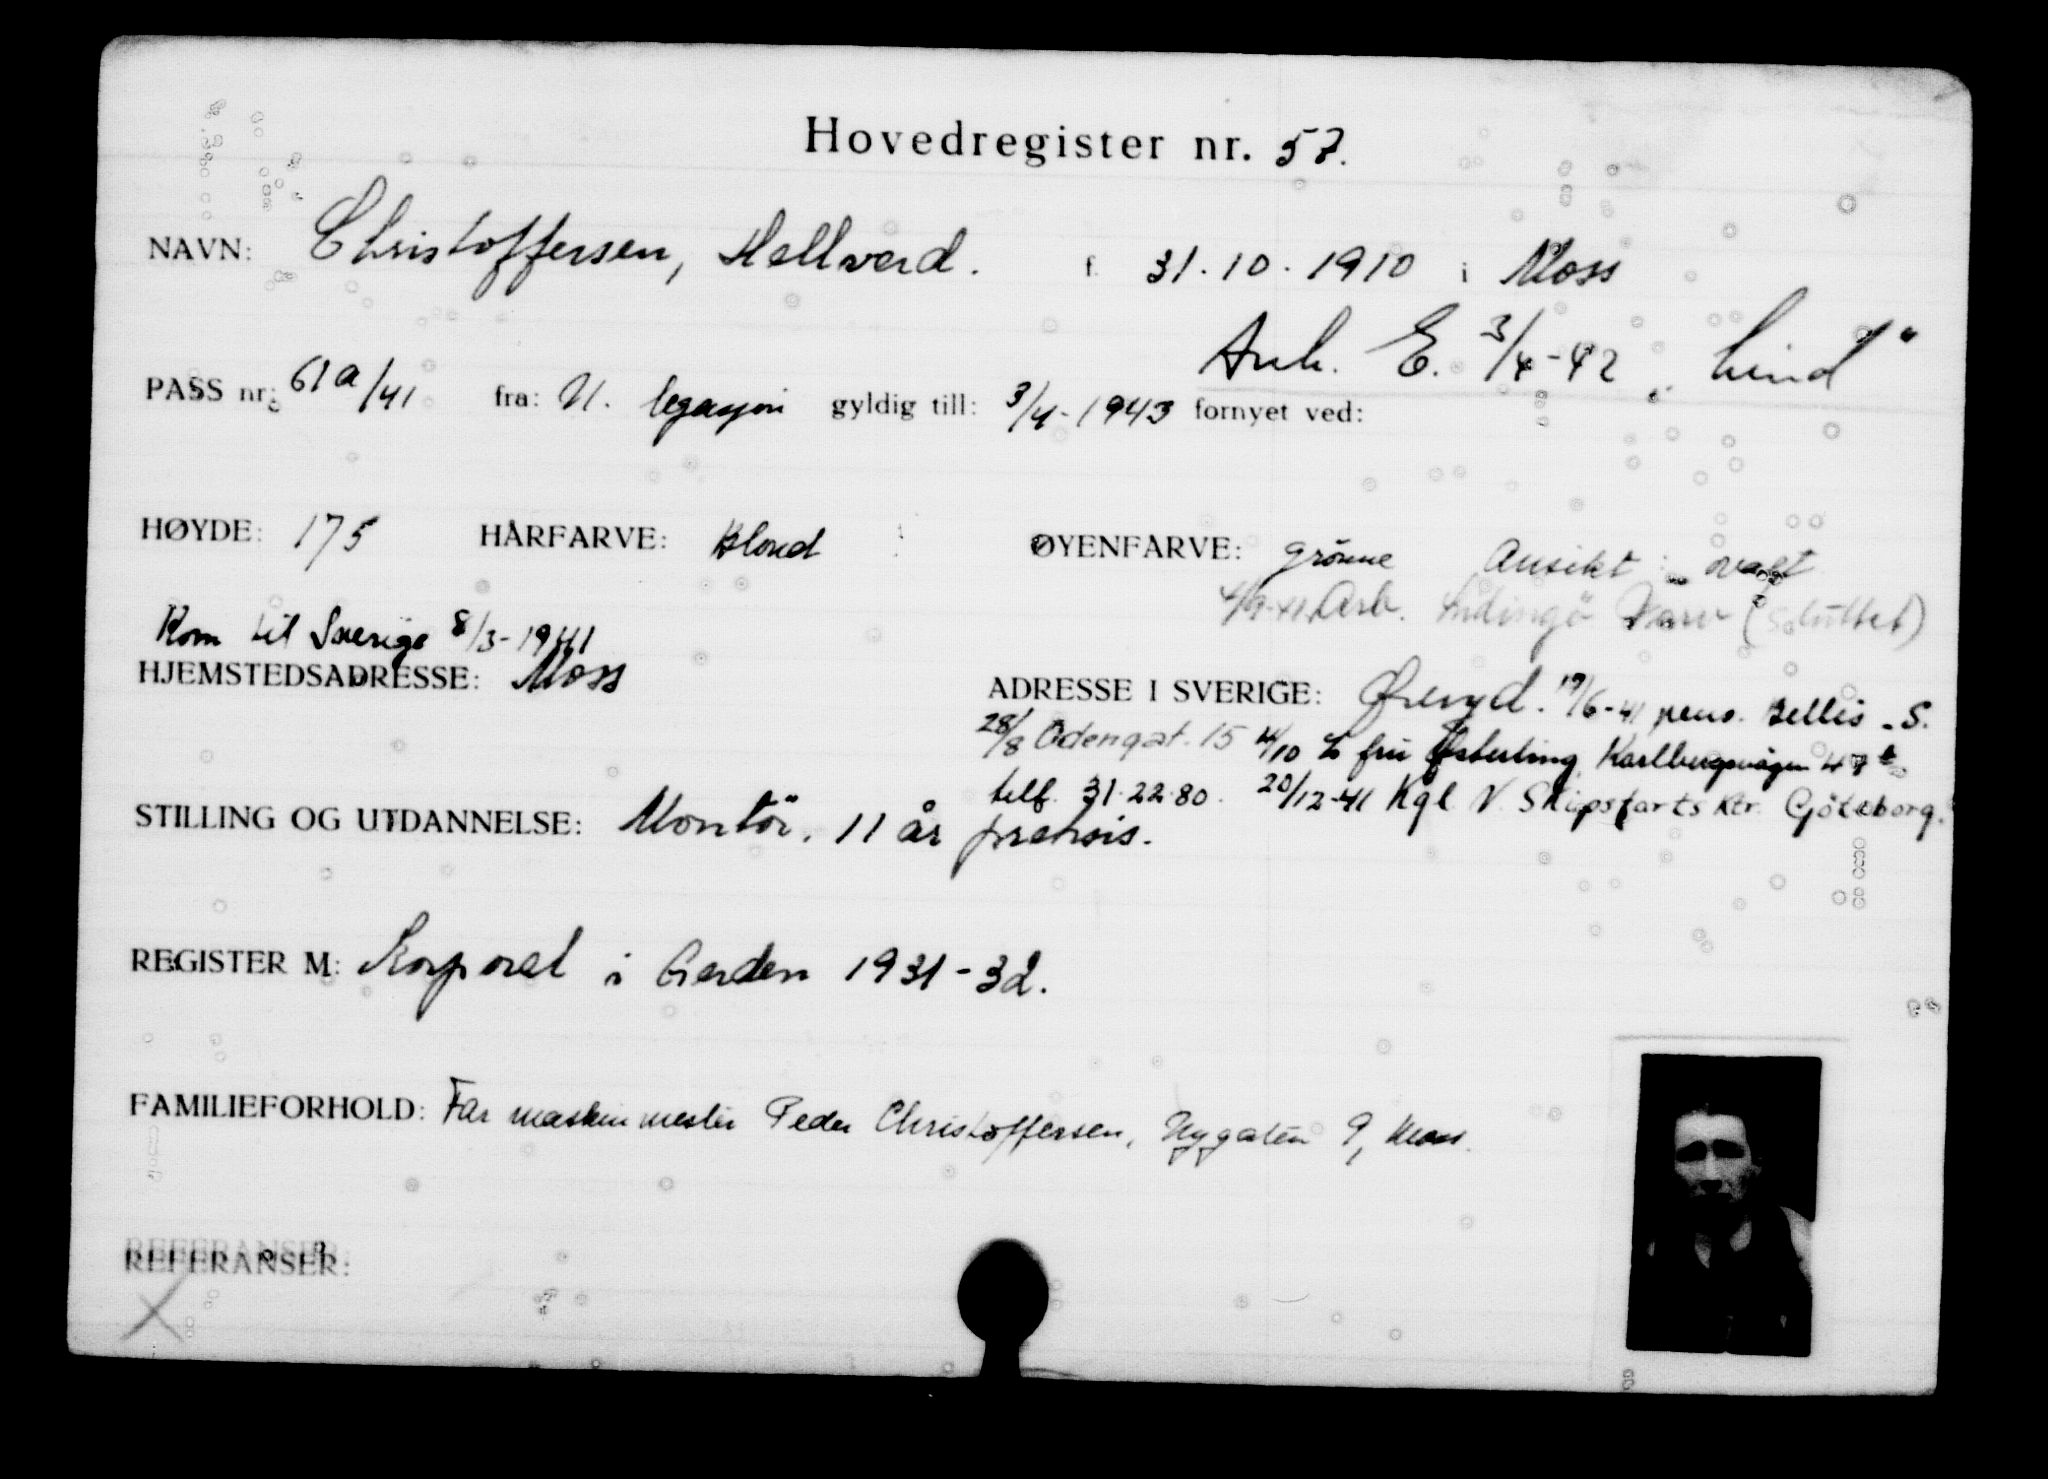 Hovedregister nr. 57.
NAVN: Christoffersen, Hallvard. f. 31.10.1910 i Moss
Ank. E. 3/4-42 „Lind"
PASS nr: 61a/41 fra: N. legasjon gyldig till: 3/4-1943 fornyet ved:
HØYDE: 175 HÅRFARVE: Blond ØYENFARVE: grönne Ansikt: ovalt
4/9-41 Arb. Lidingö Varv (Sluttet)
Kom til Sverige 8/3-1941
HJEMSTEDSADRESSE: Moss ADRESSE I SVERIGE: Öreryd. 19/6-41 pens. Bellis - S.
28/8 Odengat. 15 4/10 % fru Österling, Karlbergsvägen
telf. 31.22.80. 20/12-41 Kgl N. Skipsfarts Ktr. Göteborg.
STILLING OG UTDANNELSE: Montör. 11 år praksis.
REGISTER M: Korporal i Garden 1931-32.
FAMILIEFORHOLD: Far maskinmester Peder Christoffersen, Nygaten 9, Moss.
REFERANSER: